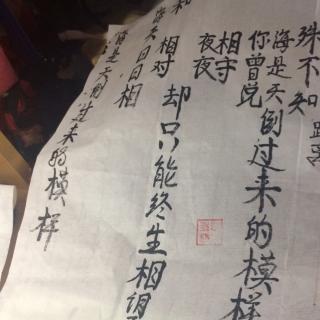 殊不知距离
海是天倒过来的模样
你曾说
相守
夜夜
相对却只能终生相
和
海天日日相
海是天倒过来的模样